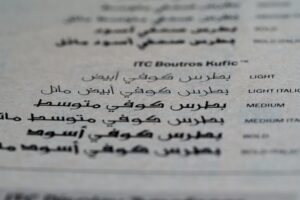 بطرس صحفي أسود
بطرس صحفي أسود مائل
ITC Boutros Kufic™
بطرس كوفي أبيض LIGHT
بطرس كوفي أبيض مائل LIGHT ITALIC
بطرس كوفي متوسط MEDIUM
بطرس كوفي متوسط مائل MEDIUM
بطرس كوفي أسود BOLD
بطرس كوفي أسود BOLD